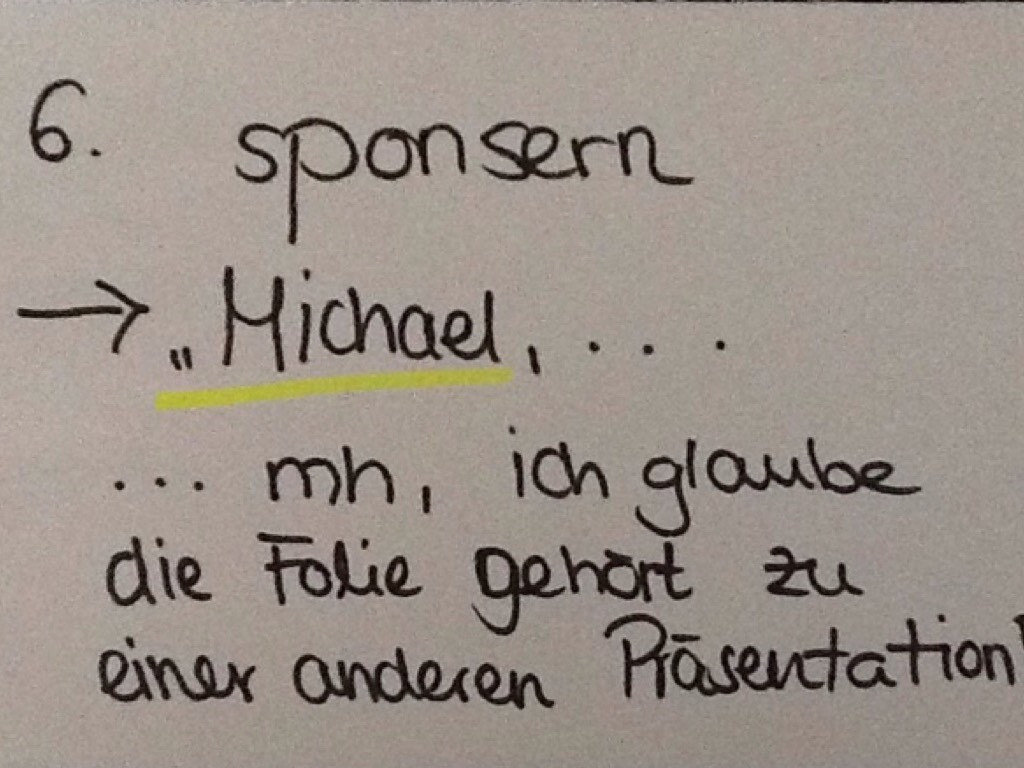 6. sponsern
→ „Michael, ...
... mh, ich glaube
die Folie gehört zu
einer anderen Präsentation"